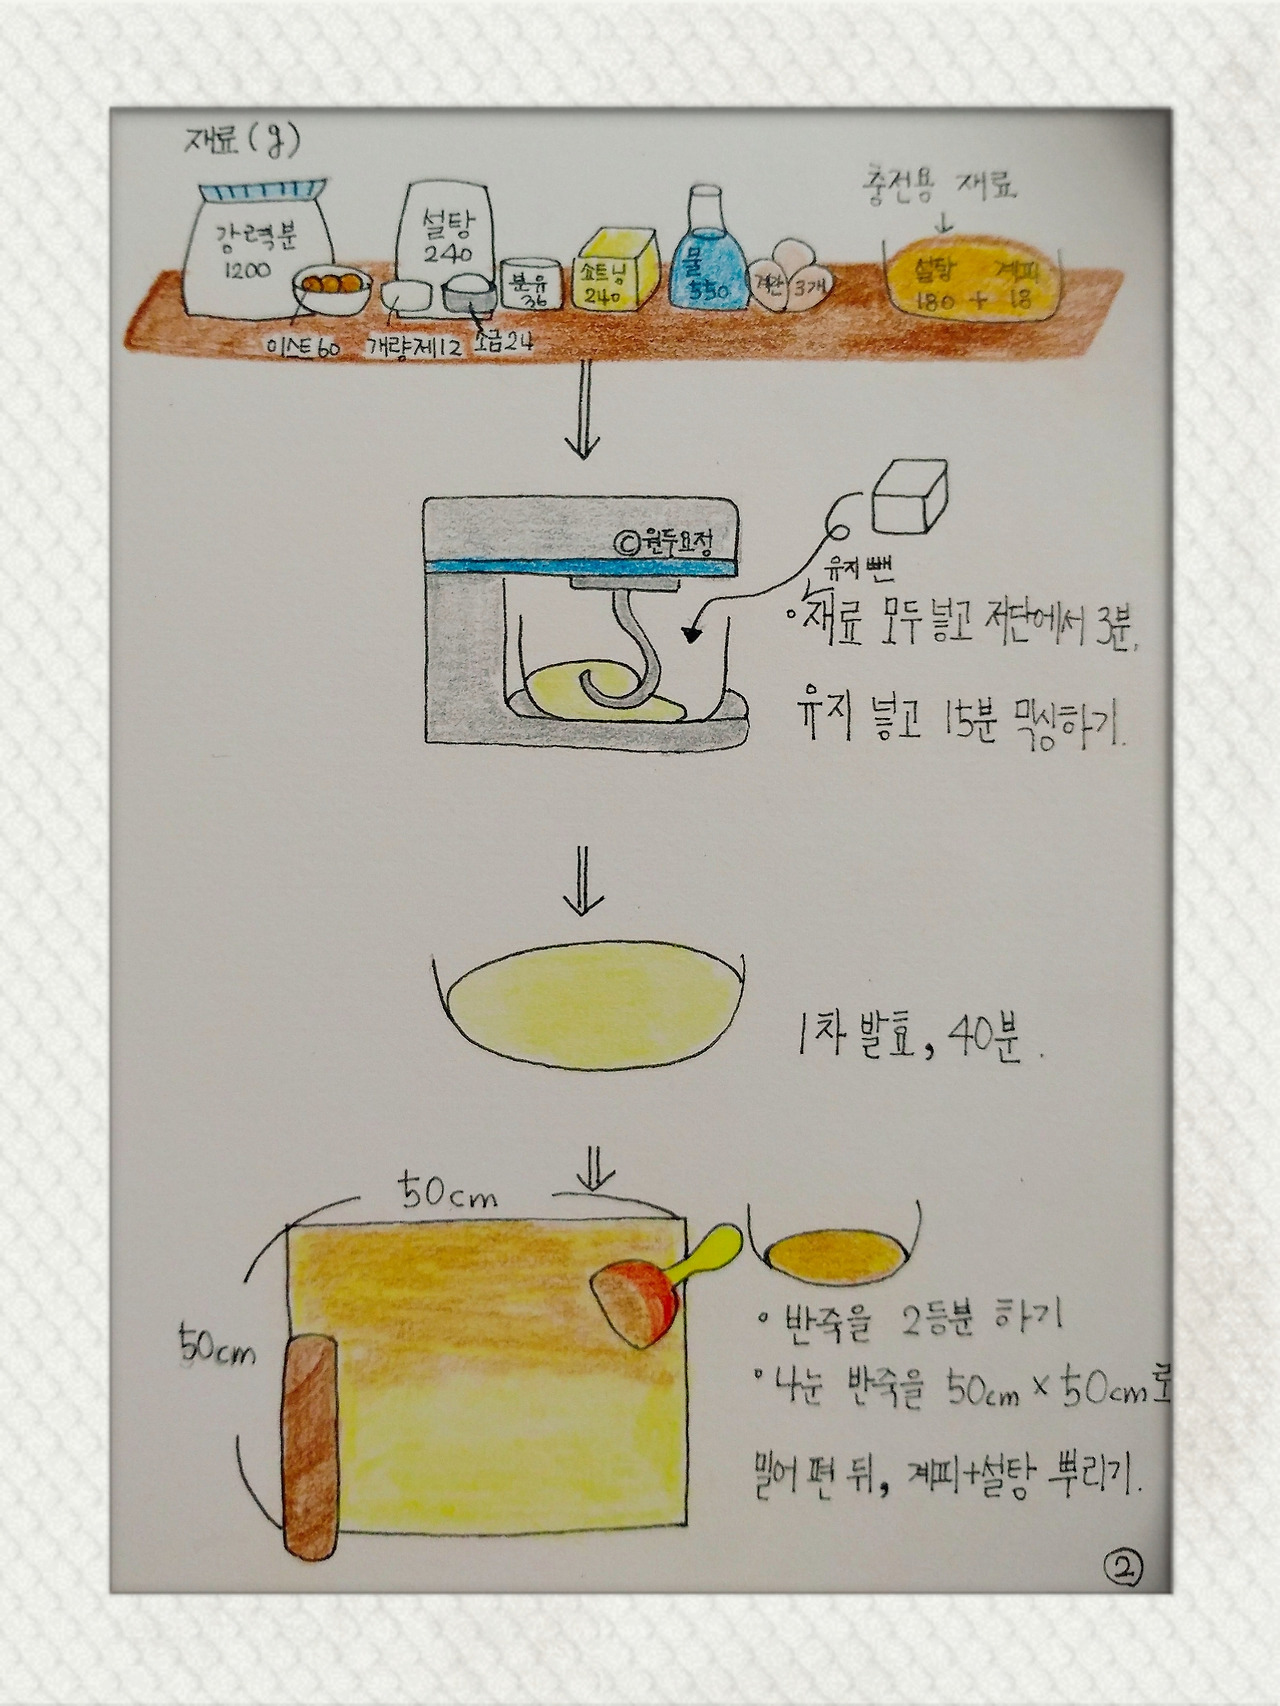 재료(g)
충전용 재료
강력분
1200
설탕
240
분유
36
쇼트닝
240
물
550
계란 3개
설탕 계피
180 + 18
이스트60
개량제12
소금24
ⓒ원두요정
유지 뺀
°재료 모두 넣고 저단에서 3분,
유지 넣고 15분 믹싱하기.
1차 발효, 40분.
50cm
50cm
°반죽을 2등분 하기
°나눈 반죽을 50cm×50cm로
밀어 편 뒤, 계피+설탕 뿌리기.
②